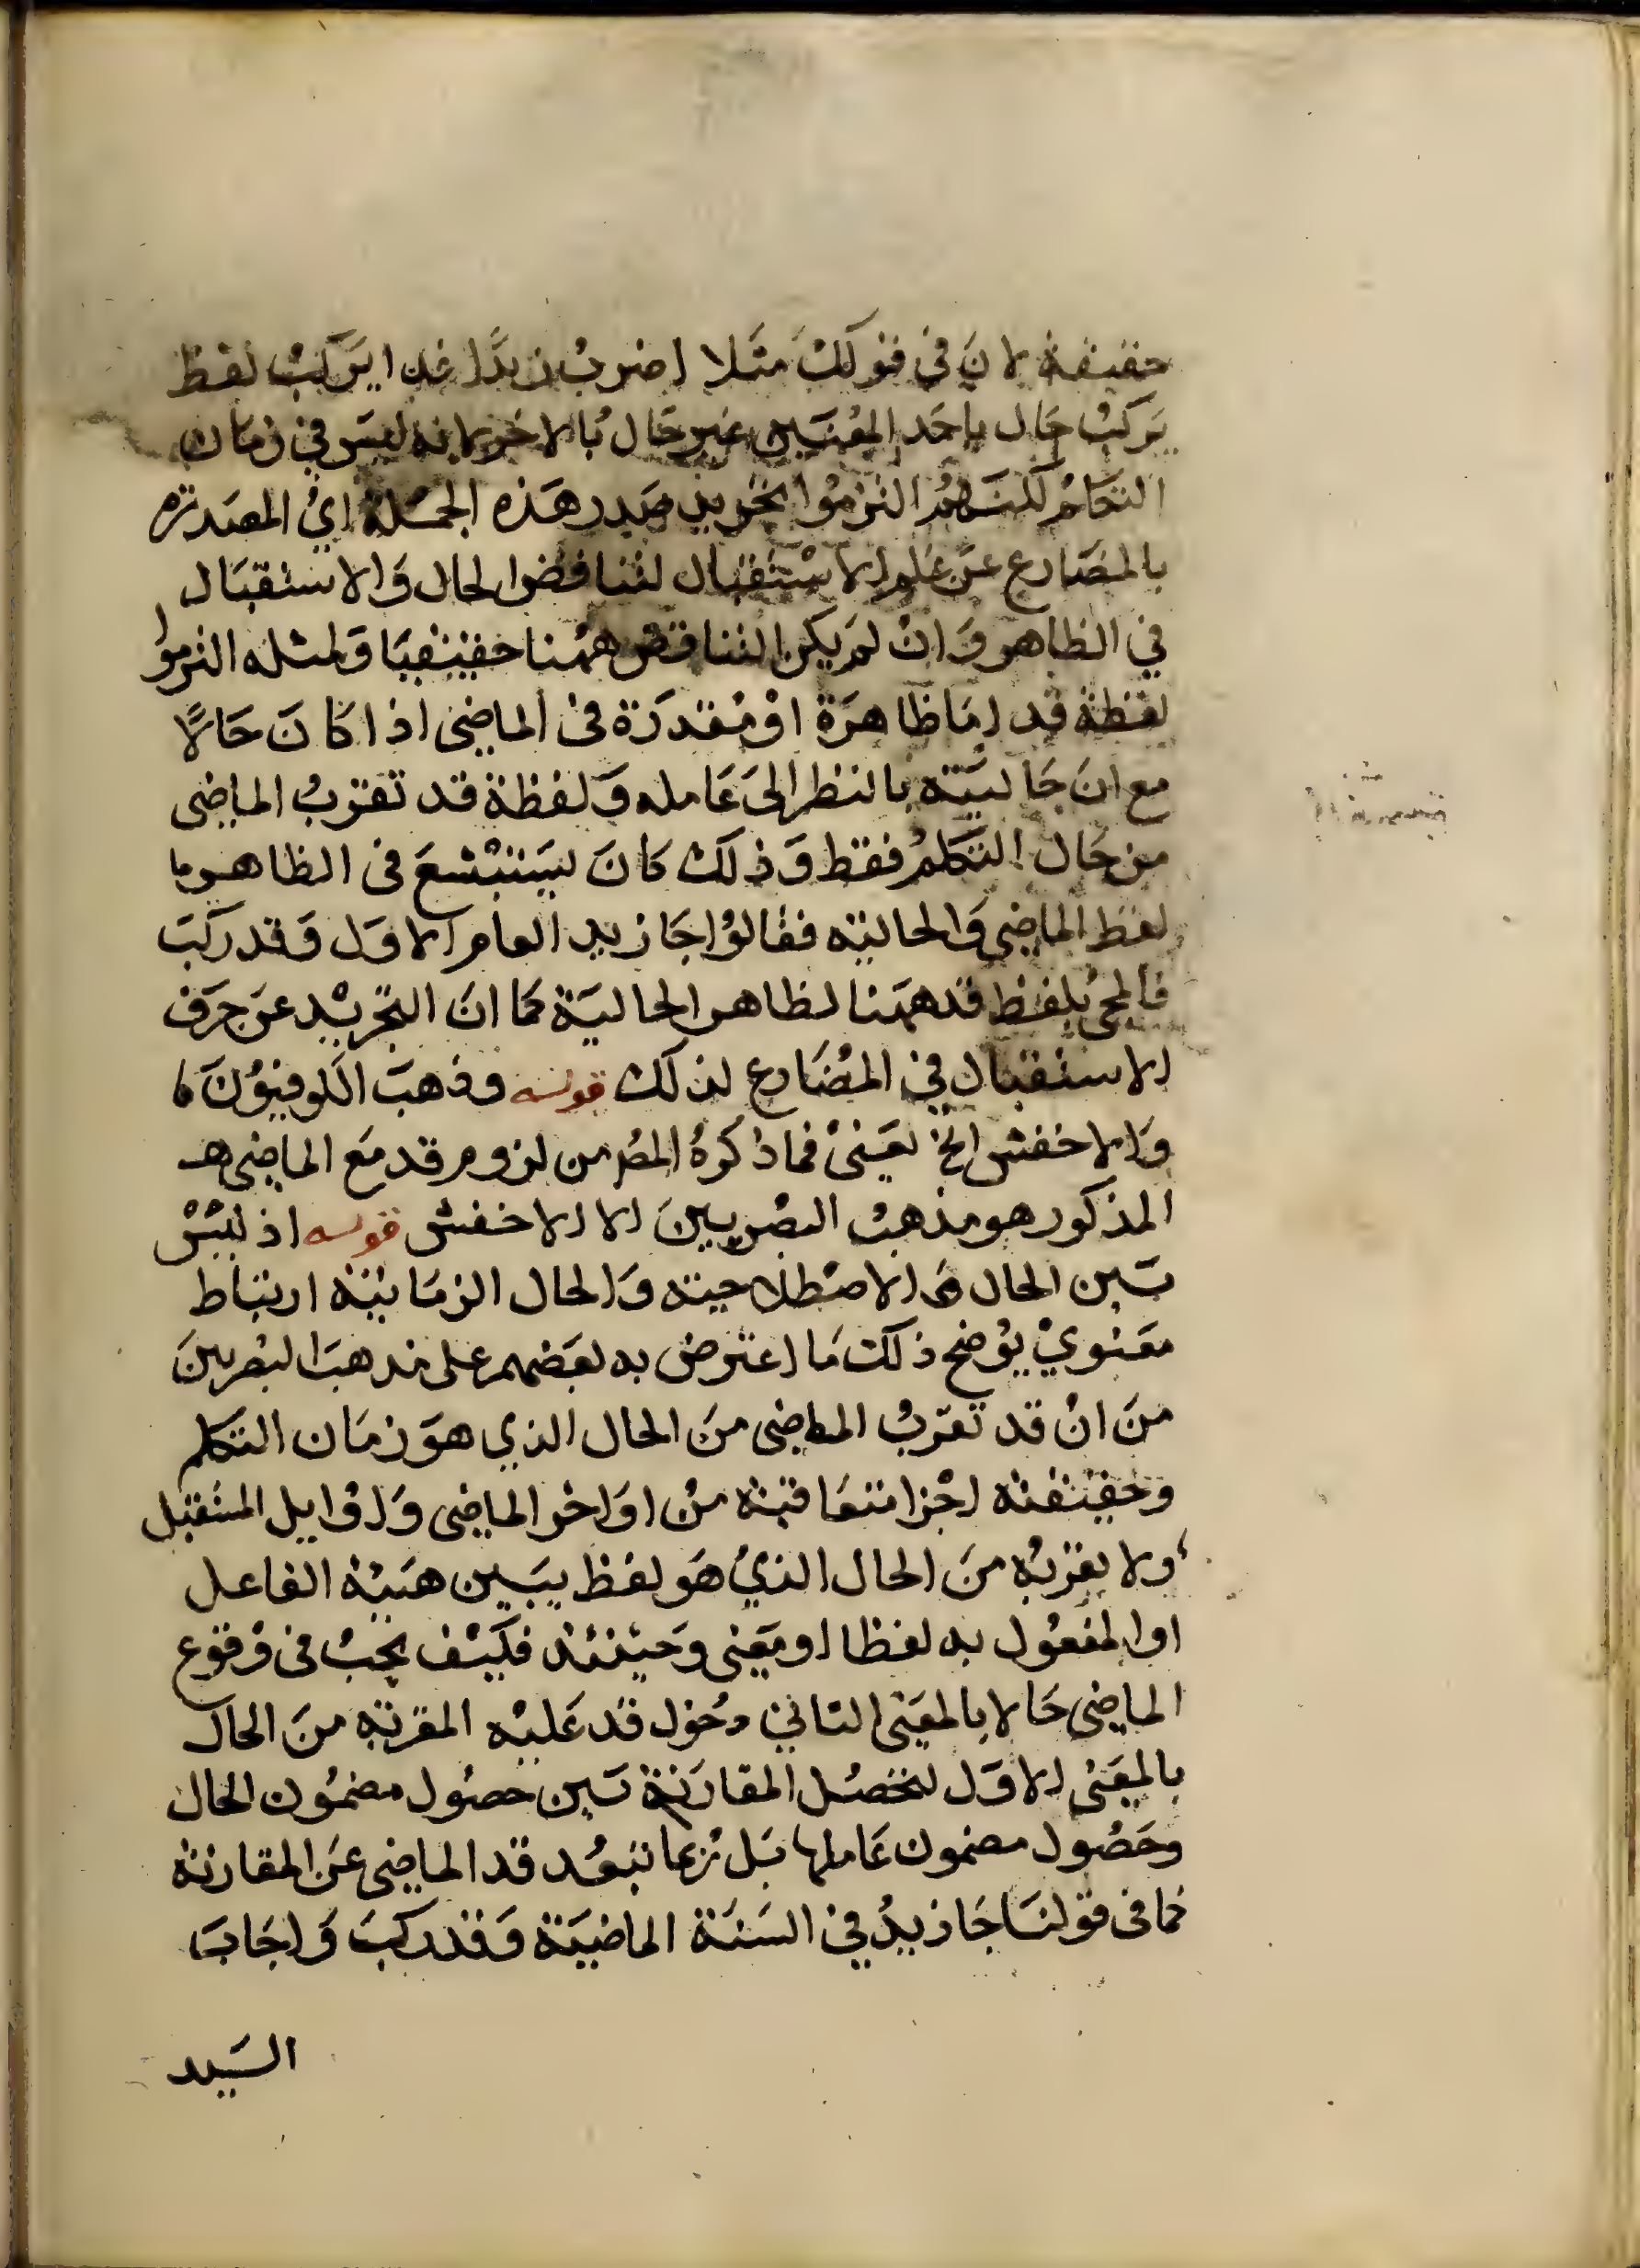 حقيقة لان في قولك مثلا اضرب زيدا غدا يركب لفظ
يركب حال باحد المعنيين غير حال بالاخر لانه ليس في زمان
التكلم لكنهم التزموا تجريد صدر هذه الجملة اي المصدرة
بالمضارع عن علم الاستقبال لتناقض الحال والاستقبال
في الظاهر وان لم يكن التناقض ههنا حقيقيا ولمثله التزموا
لفظة قد اما ظاهرة او مقدرة في الماضي اذا كان حالا
مع ان حاليته بالنظر الى عامله ولفظة قد تقرب الماضي
من حال التكلم فقط وذلك كان يستبشع في الظاهر
لفظ الماضي والحالية فقالوا جا زيد العام الاول وقد ركب
فالمجئ بلفظ قد ههنا لظاهر الحالية كما ان التجريد عن حرف
الاستقبال في المضارع لذلك قوله وذهب الكوفيون
والاخفش الخ يعني فما ذكره المص من لزوم قد مع الماضي
المذكور هو مذهب البصريين الا الاخفش قوله اذ ليس
بين الحال الاصطلاحية والحال الزمانية ارتباط
معنوي يوضح ذلك ما اعترض به بعضهم على مذهب البصريين
من ان قد تقرب الماضي من الحال الذي هو زمان التكلم
وحقيقته اجزا متعاقبة من اواخر الماضي واوايل المستقبل
ولا يقربه من الحال الذي هو لفظ يبين هيئة الفاعل
او المفعول به لفظا او معنى وحينئذ فكيف يجب في وقوع
الماضي حالا بالمعنى الثاني دخول قد عليه المقربة من الحال
بالمعنى الاول لتحصل المقارنة بين حصول مضمون الحال
وحصول مضمون عاملها بل ربما تبعد قد الماضي عن المقارنة
كما في قولنا جا زيد في السنة الماضية وقد ركب واجاب
السيد